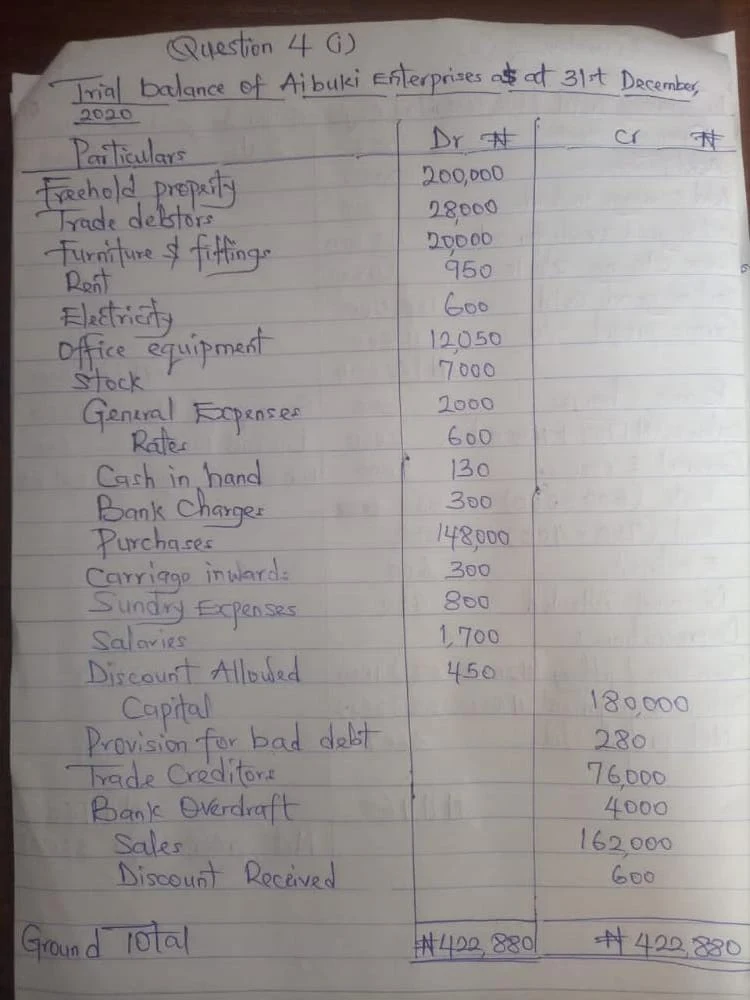 Question 4 (i)
Trial balance of Aibuki Enterprises as at 31st December,
2020
Particulars Dr ₦ Cr ₦
Freehold property 200,000
Trade debtors 28,000
Furniture & fiffings 20,000
Rent 950
Electricity 600
Office equipment 12,050
Stock 7000
General Expenses 2000
Rates 600
Cash in hand 130
Bank Charges 300
Purchases 148,000
Carriago inwards 300
Sundry Expenses 800
Salaries 1,700
Discount Allowed 450
Capital 180,000
Provision for bad debt 280
Trade Creditors 76,000
Bank Overdraft 4000
Sales 162,000
Discount Received 600
Ground Total ₦422,880 ₦422,880